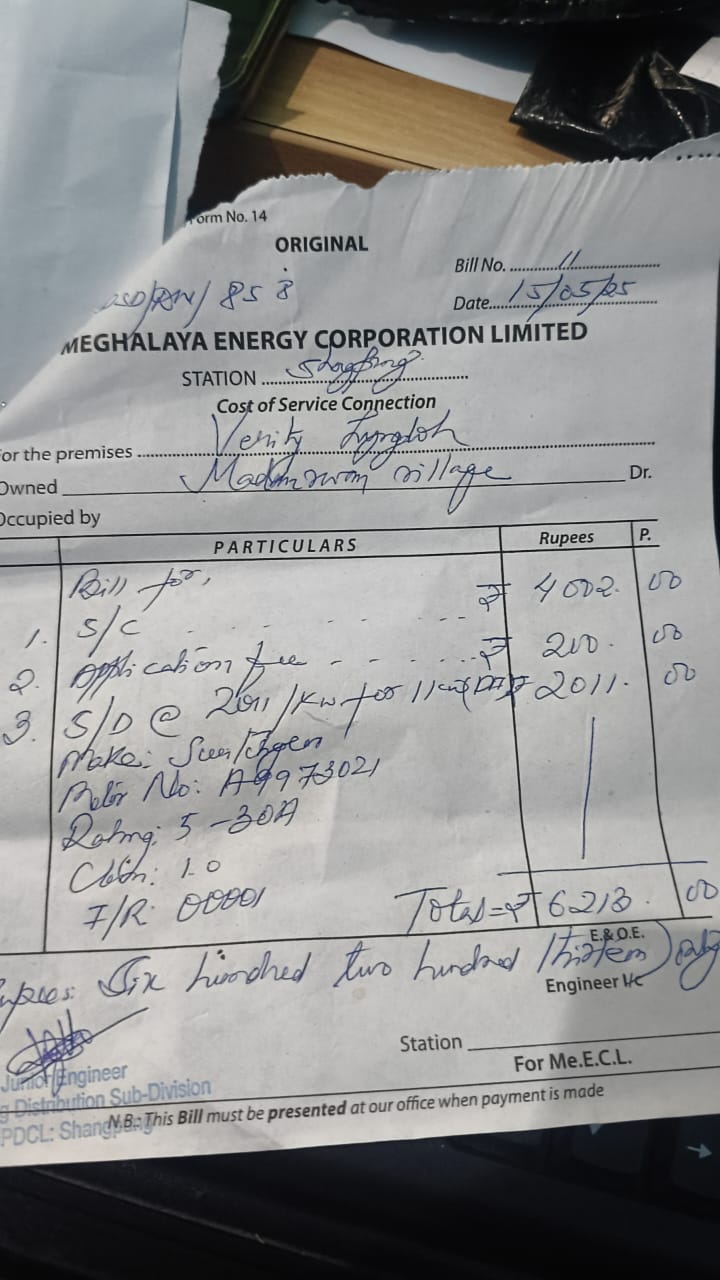 Form No. 14
ORIGINAL
Bill No. 11
/ 858
Date 15/05/25
MEGHALAYA ENERGY CORPORATION LIMITED
STATION
Cost of Service Connection
For the premises Verity Lyngdoh
Owned village Dr.
Occupied by
PARTICULARS Rupees P.
Bill for,
1. S/C - - - - - - ₹ 4002. 00
2. Application fee - - - - - ₹ 200. 00
3. S/D @ 2011/KW for 1 2011. 00
Make:
No: A9973021
Rating: 5-30A
1.0
I/R: 00001
Total = ₹ 6213. 00
E.& O.E.
Rupees: Six hundred two hundred thirteen) only
Engineer I/c
Station
Junior Engineer
For Me.E.C.L.
Distribution Sub-Division
N.B.: This Bill must be presented at our office when payment is made
PDCL: Shangpung